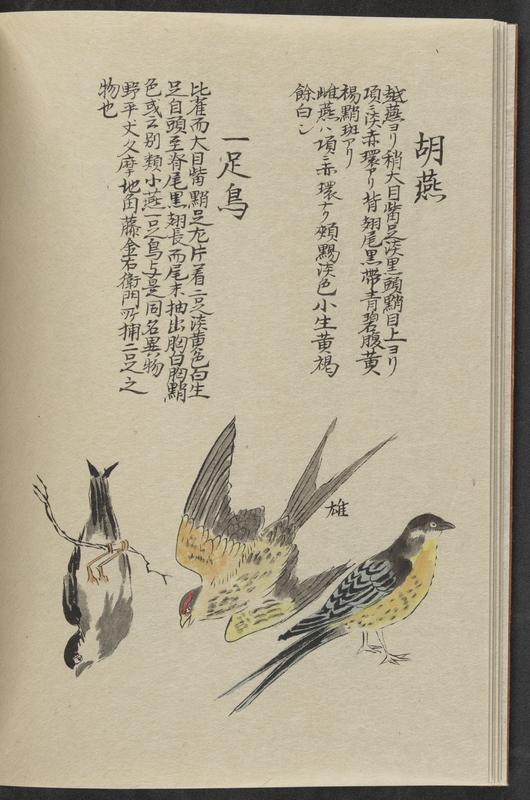 胡燕
越燕ヨリ稍大目觜足淡黒頭黪目上ヨリ
項ニ淡赤環アリ背翅尾黒帶青碧腹黄
楊黪斑アリ
雌燕ハ項ニ赤環ナク頰臅淡色小生黄褐
餘白シ
一足鳥
比雀而大目觜黪足尤片着二足淡黄色白生
足自頭至脊尾黒翅長而尾末抽出胸白胸黪
色或云別類小燕一足鳥与是同名異物
野平丈久摩地角藤金右衛門所捕二足之
物也
雄